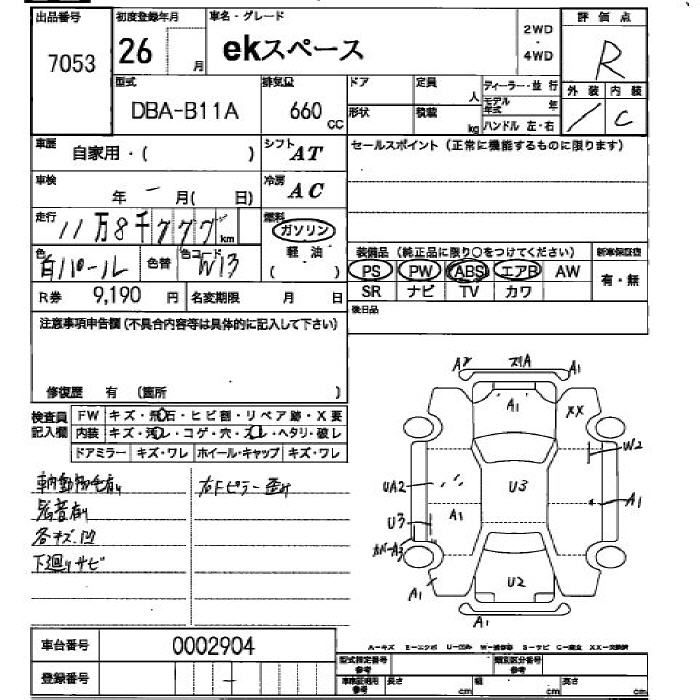 出品番号
7053
初度登録年月
26
月
車名・グレード
ekスペース
2WD
・
4WD
評価点
R
外装
内装
/
C
型式
DBA-B11A
排気量
660
CC
ドア
定員
人
形状
積載
kg
ディーラー・並行
モデル年式
年
ハンドル 左・右
車歴
自家用・( )
シフト
AT
セールスポイント (正常に機能するものに限ります)
車検
年 - 月( 日)
冷房
AC
走行
11万8千777
km
燃料
ガソリン
軽油
( )
色
白パール
色替
色コード
W13
装備品 (純正品に限り○をつけてください)
新車保証書
PS
PW
ABS
エアB
AW
有・無
SR
ナビ
TV
カワ
R券
9,190 円
名変期限
月
日
後日品
注意事項申告欄(不具合内容等は具体的に記入して下さい)
修復歴 有 (箇所 )
検査員
記入欄
FW
キズ・飛石・ヒビ割・リペア跡・X要
内装
キズ・汚レ・コゲ・穴・スレ・ヘタリ・破レ
ドアミラー
キズ・ワレ
ホイール・キャップ
キズ・ワレ
車内動物毛有り
右Fピラー歪み
各キズ、凹
下廻りサビ
A2
A1
A1
XX
W2
UA2
U3
A1
A1
U3
カバーA3
U2
A1
A1
車台番号
0002904
登録番号
-
A-キズ E-エクボ U-凹み W-補修跡 S-サビ C-腐食 XX-交換済
型式指定番号
参考
類別区分番号
参考
車検証明用
参考
長さ
cm
幅
cm
高さ
cm